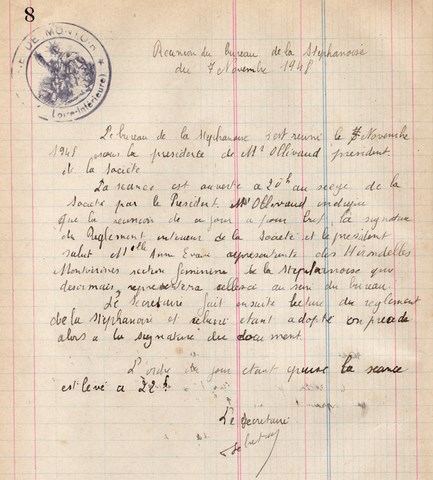 8
DE MONTOIR
(Loire-Inférieure)
Réunion du bureau de la Stéphanoise
du 7 Novembre 1948
Le bureau de la Stéphanoise s'est réuni le 7 Novembre
1948 sous la présidence de Mr Ollivaud président
de la Société
La séance est ouverte a 20h au siège de la
Société par le Président. Mr Ollivaud indique
que la réunion de ce jour a pour but la signature
du Règlement intérieur de la Société et le président
salut Melle Anne Evain représentante des Hirondelles
Montoirines section féminine de la Stéphanoise qui
désormais representera celle-ci au sein du bureau.
Le secrétaire fait ensuite lecture du règlement
de la Stéphanoise et celui-ci étant adopté on procède
alors a la signature du document.
L'ordre du jour étant épuisé la séance
est levé a 22h
Le Secrétaire